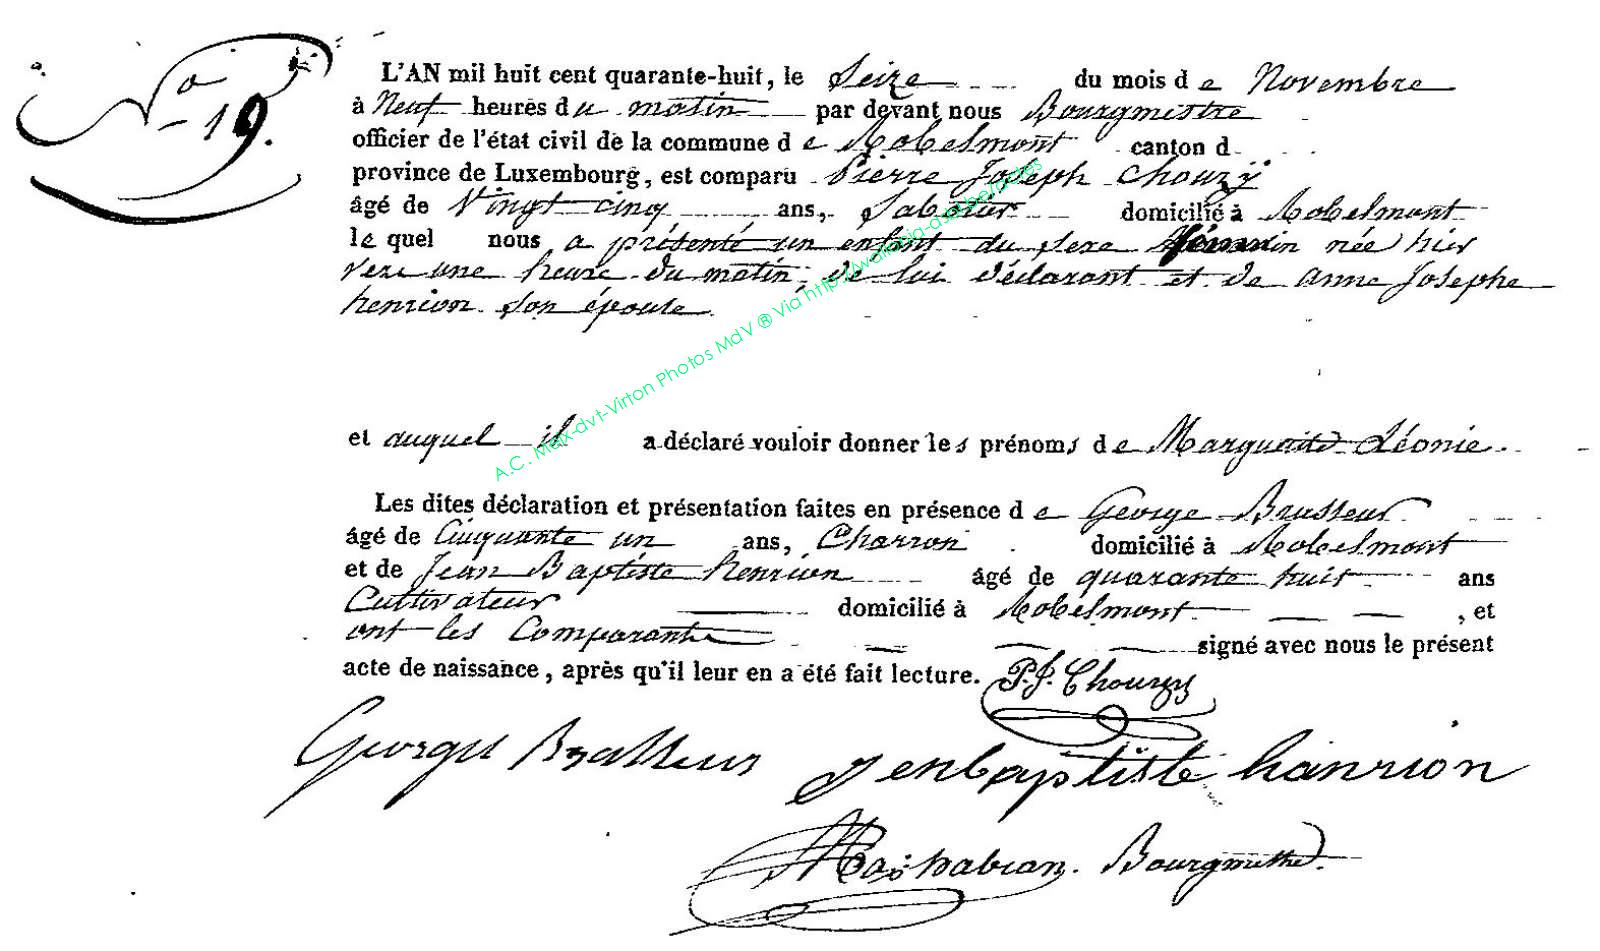 N° 19.
L'AN mil huit cent quarante-huit, le Seize du mois de Novembre
à Neuf heures du matin par devant nous Bourgmestre
officier de l'état civil de la commune de Robelmont canton d
province de Luxembourg, est comparu Pierre Joseph Chouzÿ
âgé de Vingt cinq ans, domicilié à Robelmont
le quel nous a présenté un enfant du sexe féminin née hier
vers une heure du matin, de lui déclarant et de anne Josephe
henrion son épouse.
et auquel il a déclaré vouloir donner les prénoms de Marguerite Léonie.
Les dites déclaration et présentation faites en présence de George Brasseur
âgé de Cinquante un ans, Charron domicilié à Robelmont
et de Jean Baptiste henrion âgé de quarante huit ans
Cultivateur domicilié à Robelmont , et
ont les Comparants signé avec nous le présent
acte de naissance, après qu'il leur en a été fait lecture. P.J. Chouzy
George Brasseur Jenbaptiste hanrion
Bourgmestre.
A.C. Meix-dvt-Virton Photos MdV ® Via http://wallonia-asbl.be/actes